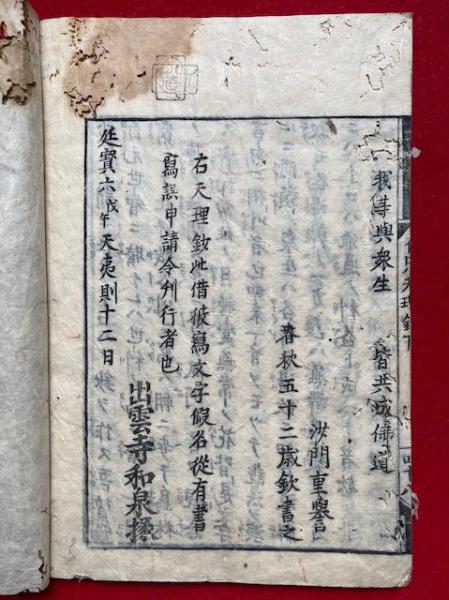 我等與衆生　皆共成佛道
沙門重譽言
春秋五十二歳欽書之
右天理鈔此借彼寫文字假名從有書
寫誤申請令刋行者也
延寳六戊午天夷則十二日
出雲寺和泉掾